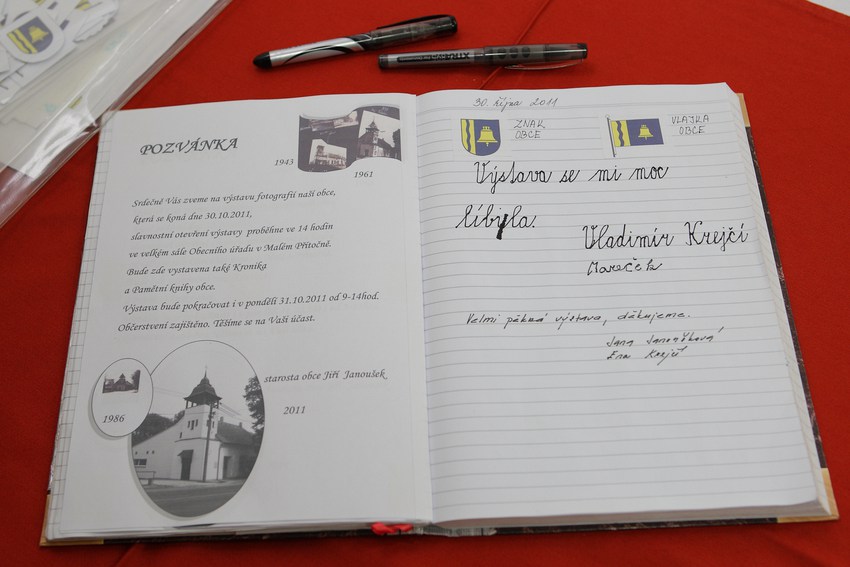 POZVÁNKA
1943
1961
Srdečně Vás zveme na výstavu fotografií naší obce,
která se koná dne 30.10.2011,
slavnostní otevření výstavy proběhne ve 14 hodin
ve velkém sále Obecního úřadu v Malém Přítočně.
Bude zde vystavena také Kronika
a Pamětní knihy obce.
Výstava bude pokračovat i v pondělí 31.10.2011 od 9-14hod.
Občerstvení zajištěno. Těšíme se na Vaši účast.
starosta obce Jiří Janoušek
1986
2011
30. října 2011
ZNAK
OBCE
VLAJKA
OBCE
Výstava se mi moc
líbyla.
Vladimír Krejčí
Mareček
Velmi pěkná výstava, děkujeme.
Jana
Eva Krejčí